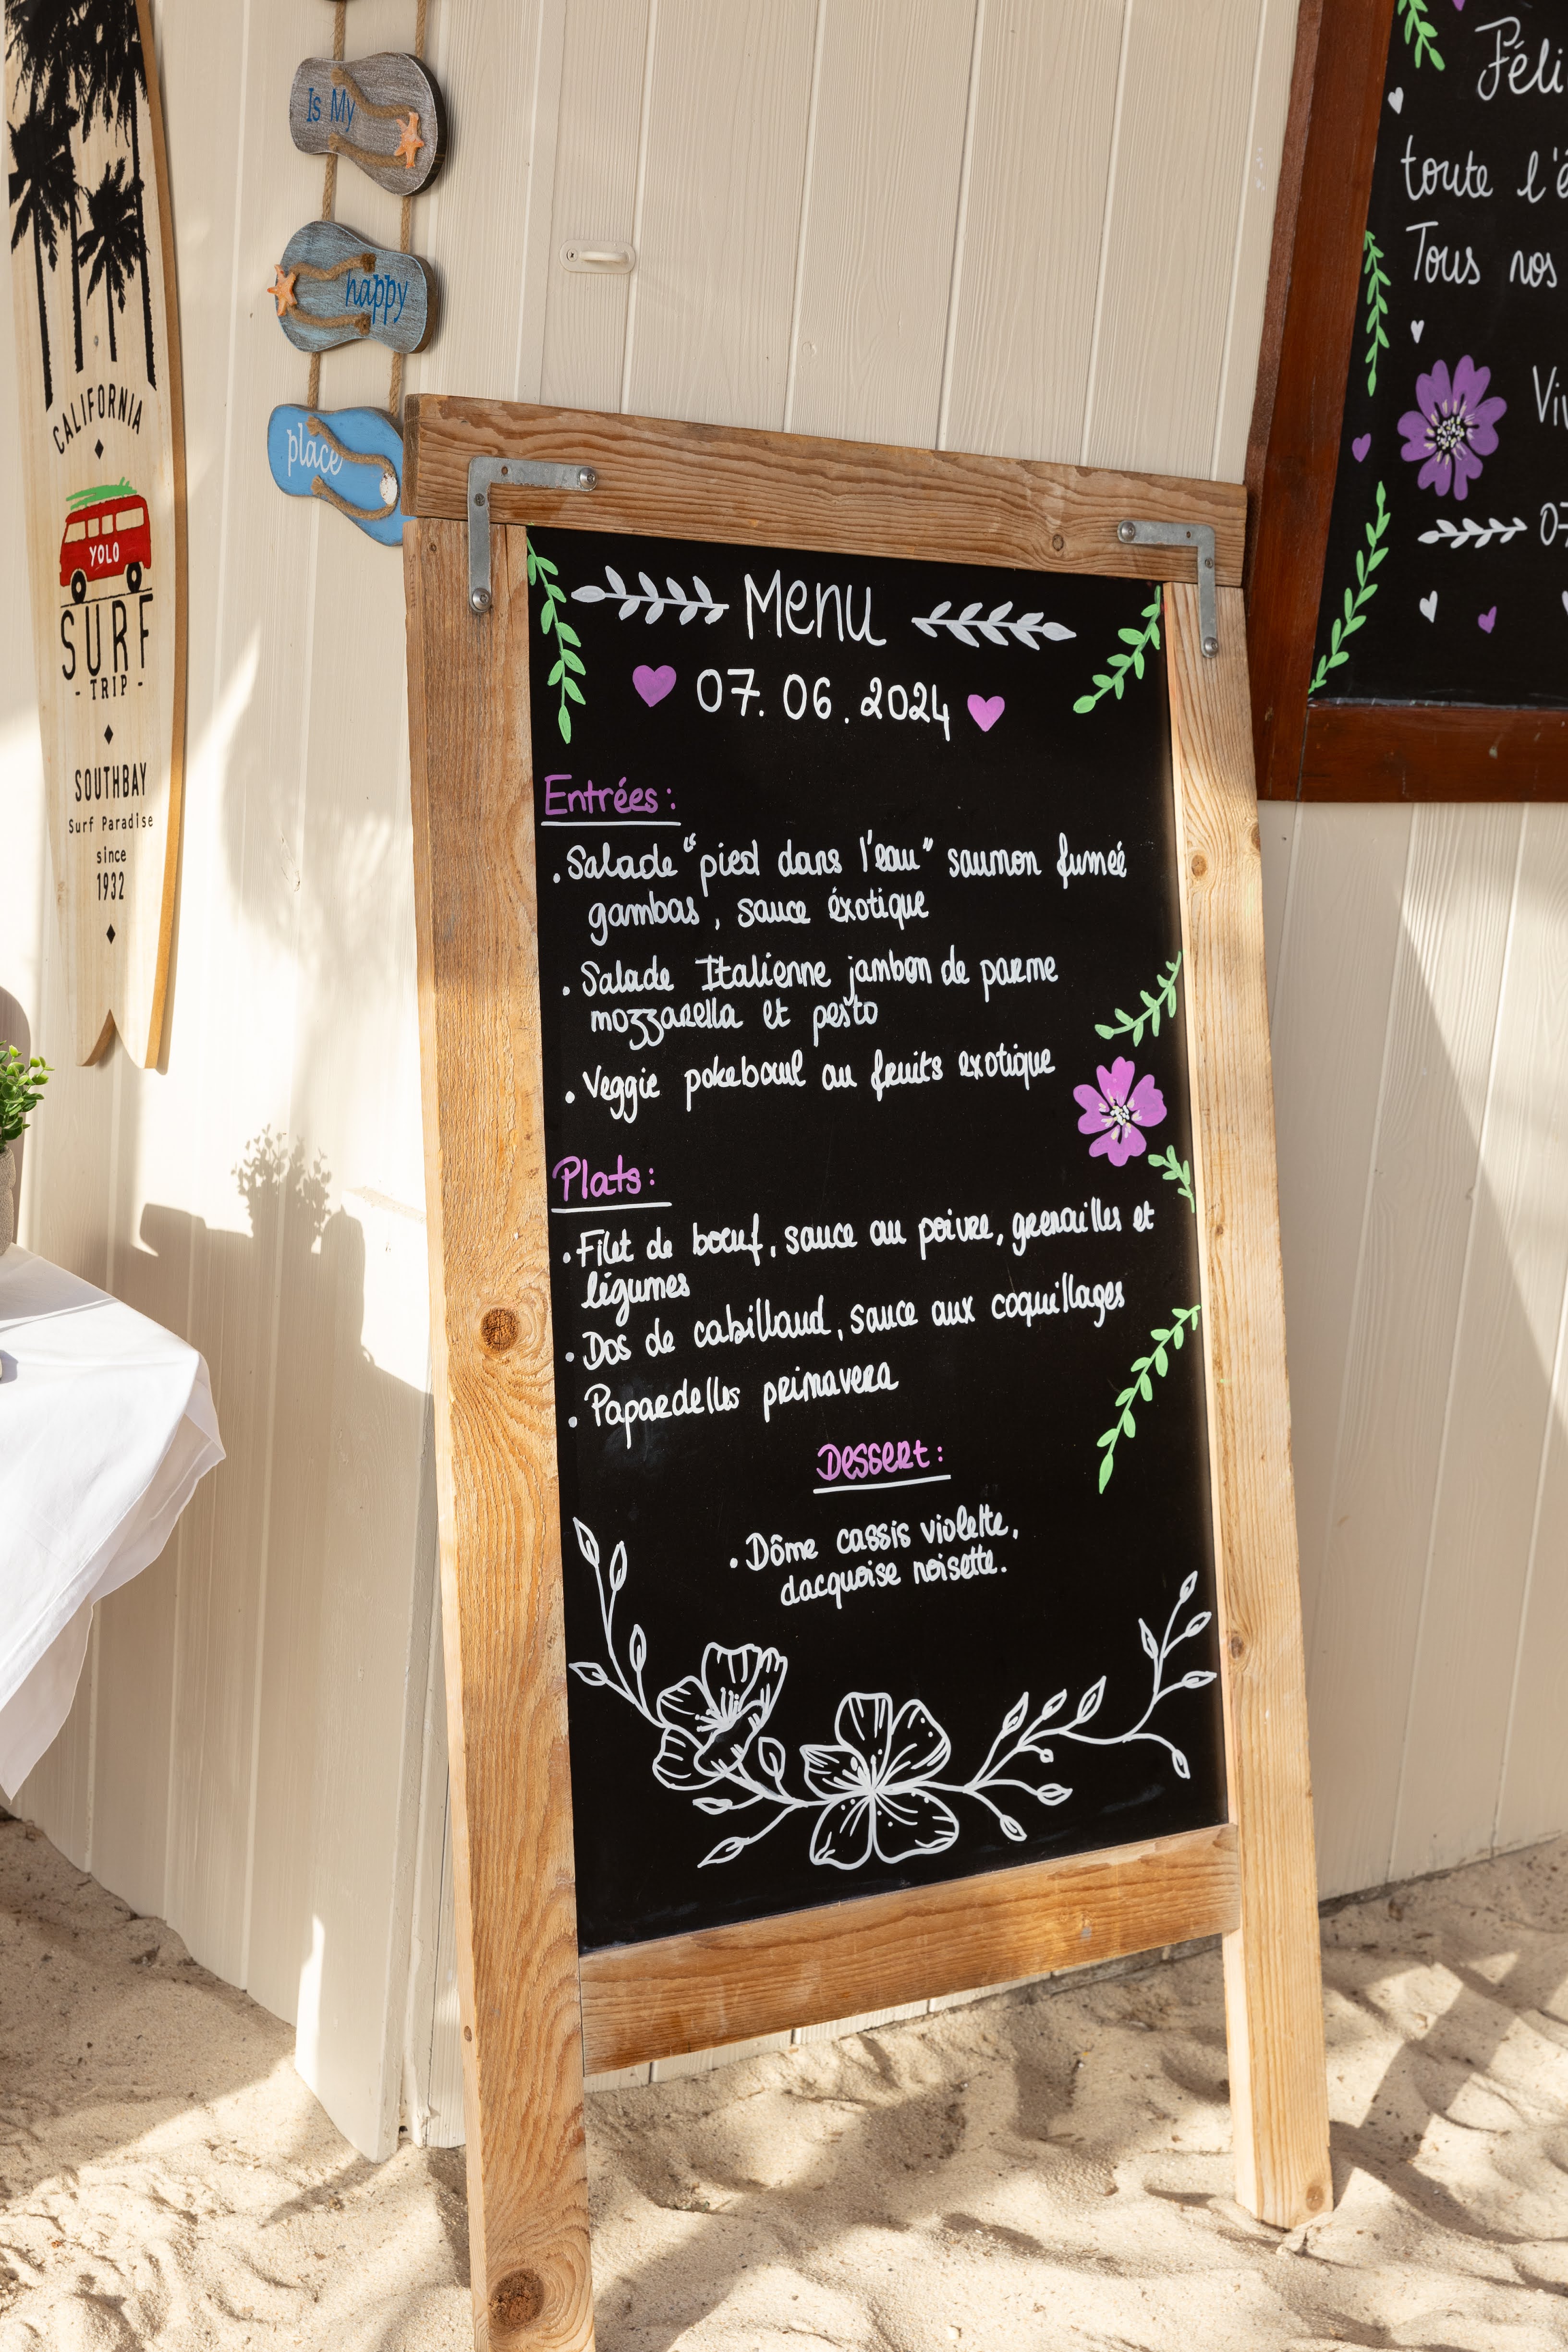 CALIFORNIA
YOLO
SURF
- TRIP -
SOUTHBAY
Surf Paradise
since
1932
Is My
happy
place
Menu
07.06.2024
Entrées:
. Salade "pied dans l'eau" saumon fumeé
gambas, sauce éxotique
. Salade Italienne jambon de parme
mozzarella et pesto
. Veggie pokebowl au fruits exotique
Plats:
. Filet de boeuf, sauce au poivre, grenailles et
légumes
. Dos de cabillaud, sauce aux coquillages
. Papardelles primavera
Dessert:
. Dôme cassis violette,
dacquoise noisette.
Féli
toute l'é
Tous nos
Viv
07